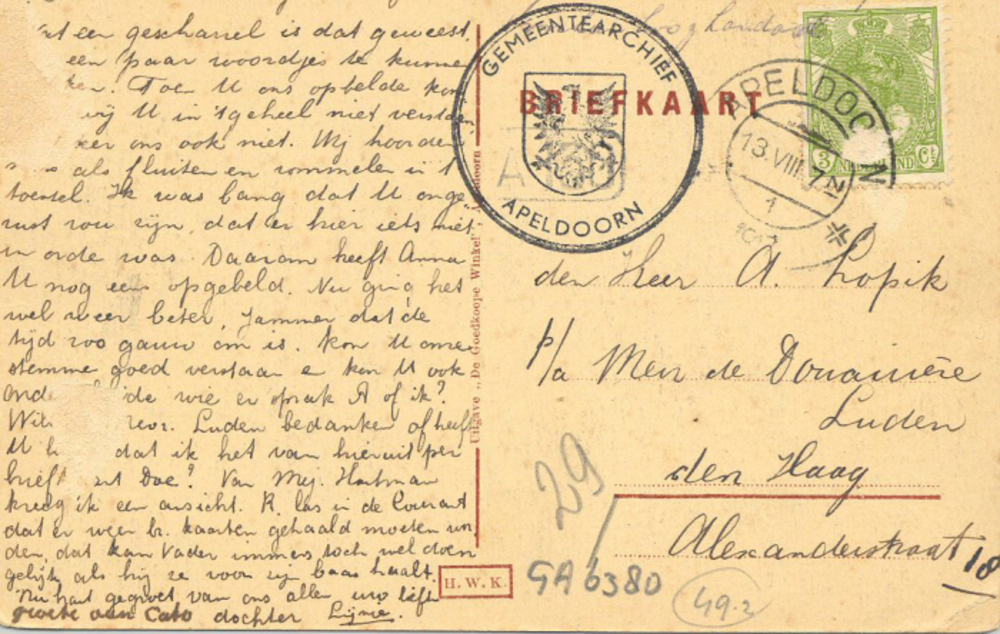 een gescharrel is dat geweest,
een paar woordjes te kunne
Toen U ons opbelde kon
wij U in 't geheel niet verstaan
ons ook niet. Wij hoorden
als fluiten en rommelen in 't
toestel. Ik was bang dat U onge
rust zou zijn, dat er hier iets niet
in orde was. Daarom heeft Anna
U nog eens opgebeld. Nu ging het
wel weer beter, Jammer dat de
tijd zoo gauw om is. Kon U onze
stemme goed verstaan en kon U ook
wie er sprak A of ik?
Luden bedanken of heeft
U dat ik het van hieruit per
brief Doe? Van Mej. Hartman
kreeg ik een ansicht. R. las in de Courant
dat er weer br. kaarten gehaald moeten wor
den, dat kan Vader immers toch wel doen
gelijk als hij ze voor zijn baas haalt.
Nu hart gegroet van ons allen uw liefh
groete aan Cato dochter Lijnie.
Uitgave „De Goedkoope Winkel", Apeldoorn
H. W. K.
GEMEENTEARCHIEF
APELDOORN
BRIEFKAART
APELDOORN
13.VIII. 7 N
1
3 NEDERLAND Ct
den Heer A. Lopik
p/a Mevr de Douairière
Luden
den Haag
Alexanderstraat 18
29
GA 6380
49-2